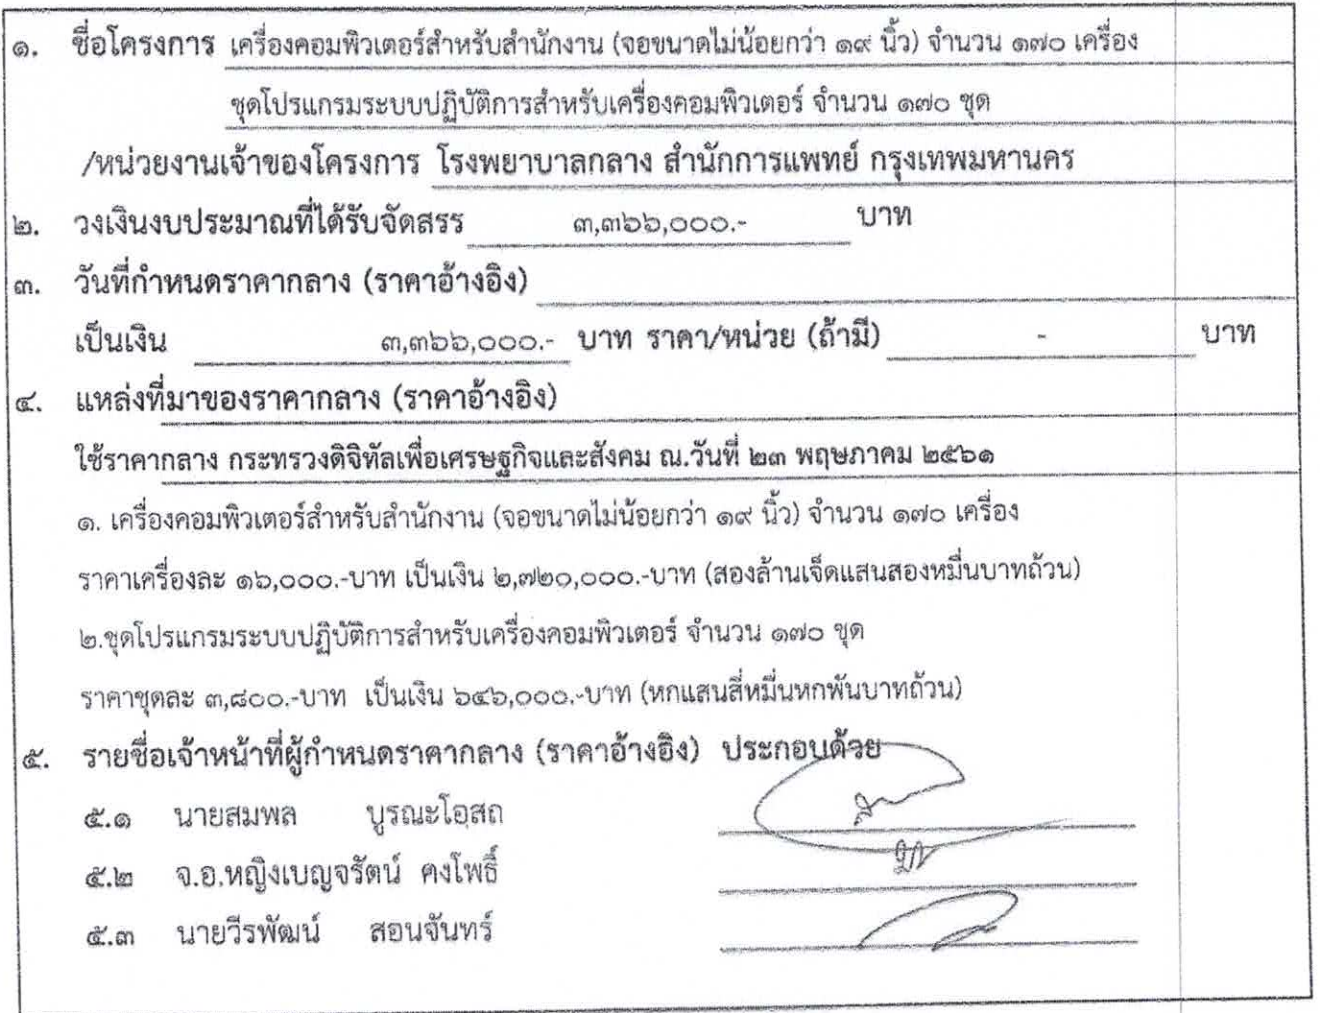 ๑. ชื่อโครงการ เครื่องคอมพิวเตอร์สำหรับสำนักงาน (จอขนาดไม่น้อยกว่า ๑๙ นิ้ว) จำนวน ๑๗๐ เครื่อง
ชุดโปรแกรมระบบปฏิบัติการสำหรับเครื่องคอมพิวเตอร์ จำนวน ๑๗๐ ชุด
/หน่วยงานเจ้าของโครงการ โรงพยาบาลกลาง สำนักการแพทย์ กรุงเทพมหานคร
๒. วงเงินงบประมาณที่ได้รับจัดสรร ๓,๓๖๖,๐๐๐.- บาท
๓. วันที่กำหนดราคากลาง (ราคาอ้างอิง)
เป็นเงิน ๓,๓๖๖,๐๐๐.- บาท ราคา/หน่วย (ถ้ามี) - บาท
๔. แหล่งที่มาของราคากลาง (ราคาอ้างอิง)
ใช้ราคากลาง กระทรวงดิจิทัลเพื่อเศรษฐกิจและสังคม ณ.วันที่ ๒๓ พฤษภาคม ๒๕๖๑
๑. เครื่องคอมพิวเตอร์สำหรับสำนักงาน (จอขนาดไม่น้อยกว่า ๑๙ นิ้ว) จำนวน ๑๗๐ เครื่อง
ราคาเครื่องละ ๑๖,๐๐๐.-บาท เป็นเงิน ๒,๗๒๐,๐๐๐.-บาท (สองล้านเจ็ดแสนสองหมื่นบาทถ้วน)
๒.ชุดโปรแกรมระบบปฏิบัติการสำหรับเครื่องคอมพิวเตอร์ จำนวน ๑๗๐ ชุด
ราคาชุดละ ๓,๘๐๐.-บาท เป็นเงิน ๖๔๖,๐๐๐.-บาท (หกแสนสี่หมื่นหกพันบาทถ้วน)
๕. รายชื่อเจ้าหน้าที่ผู้กำหนดราคากลาง (ราคาอ้างอิง) ประกอบด้วย
๕.๑ นายสมพล บูรณะโอสถ
๕.๒ จ.อ.หญิงเบญจรัตน์ คงโพธิ์
๕.๓ นายวีรพัฒน์ สอนจันทร์